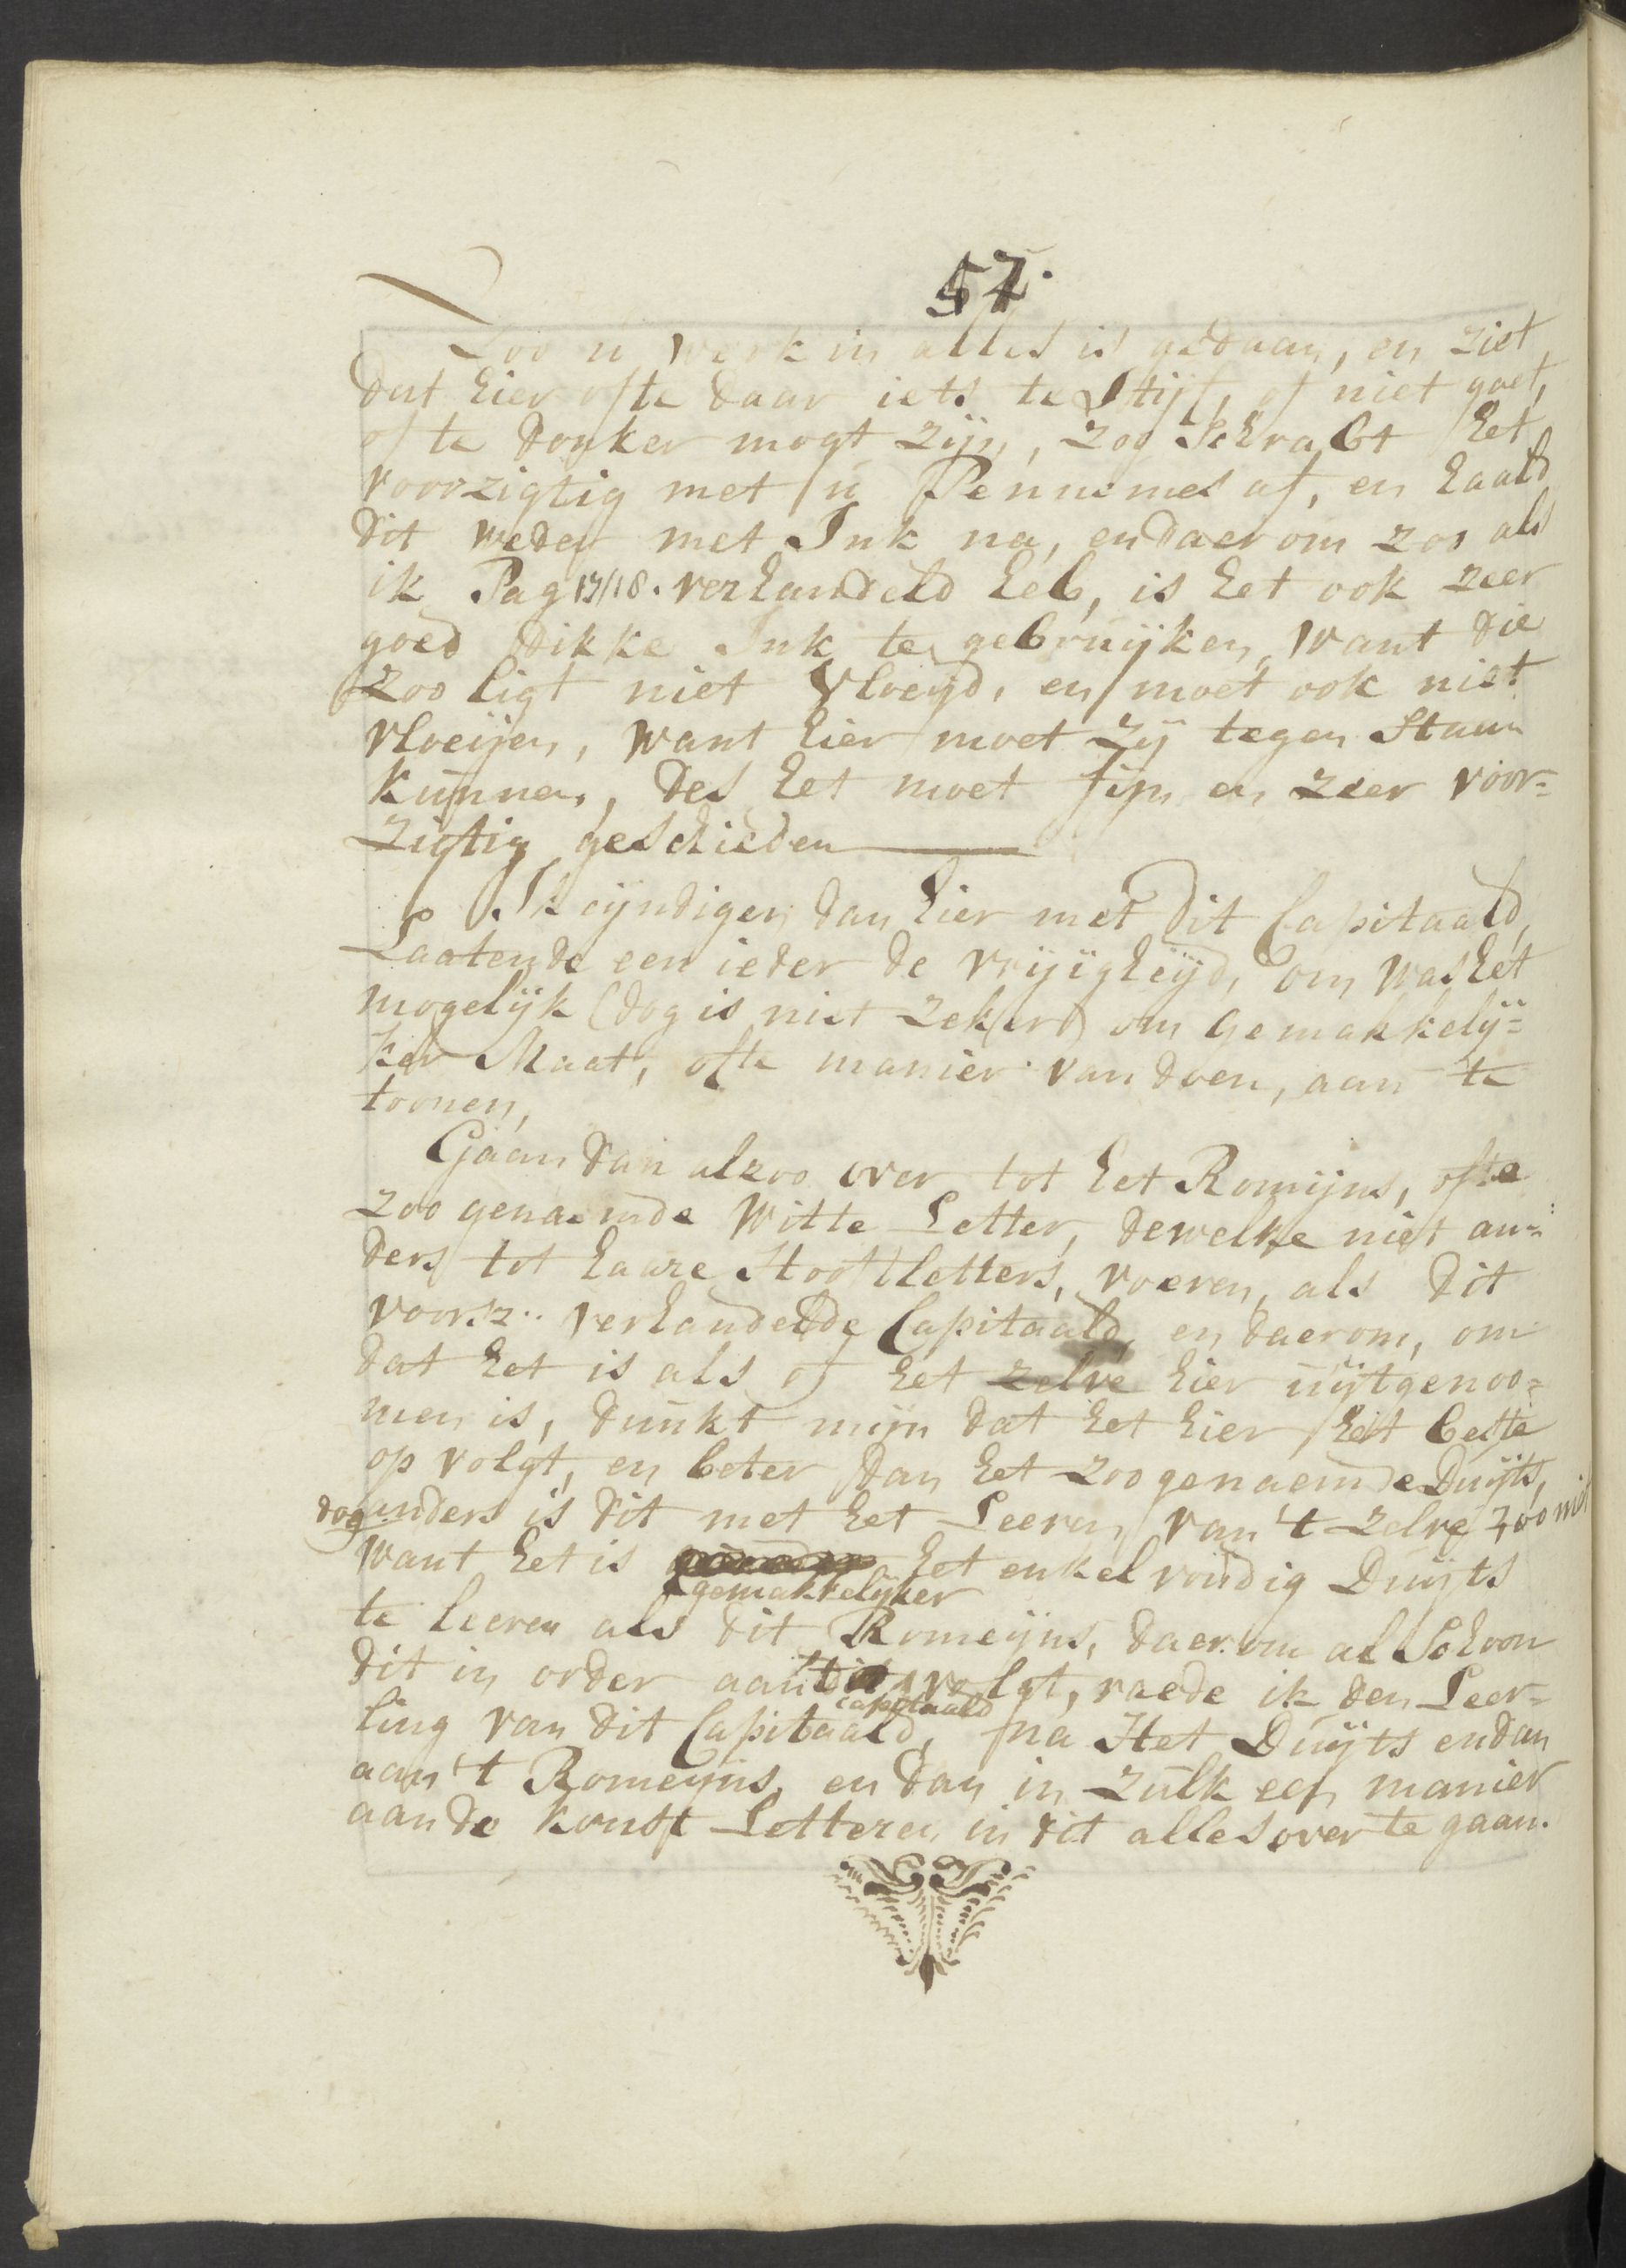 57.
Zoo u werk in alles is gedaan, en ziet
dat hier ofte daar iets te Stijf, of niet goet,
of te donker mogt zijn, zoo Schrabt het
voorzigtig met u Pennemes af, en haald
dit weder met Ink na, en daerom zoo als
ik Pag 17/18. verhandeld heb, is het ook zeer
goed dikke Ink te gebruijken, want die
zoo ligt niet vloeyd, en moet ook niet
vloeijen, want hier moet zij tegen Staan
kunnen, des het moet fijn en zeer voor=
zigtig geschieden
Ik eijndigen dan hier met dit Capitaald,
Laatende een ieder de vrijigheijd, om was het
mogelijk (dog is niet zeker) om gemakkelij=
ker Maat, ofte manier van doen, aan te
toonen,
Gaan dan alzoo over tot het Romijns, ofte
zoo genaemde Witte Letter, dewelke niet an=
ders tot haare Hooftletters, voeren, als dit
voorsz.. verhandelde Capitaald, en daerom, om
dat het is als of het zelve hier uijtgenoo=
men is, dunkt mijn dat het hier het beste
op volgt, en beter dan het zoo genaemde Duijts,
dog anders is dit met het Leeren van 't zelve zoo niet
want het is het enkelvoudig Duijts
gemakkelijker
te leeren als dit Romeijns, daerom al Schoon
dit in order aan volgt, raede ik den Leer=
capitaald
ling van dit Capitaald, na Het Duijts en dan
aan 't Romeijns, en dan in zulk een manier
aan de konst Letteren in dit alles over te gaan.